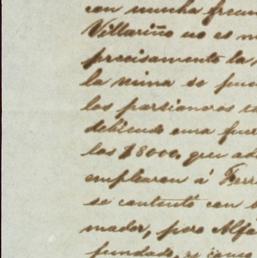 con mucha frecu
Villariño no es m
precisamente la
la mina se fun
los parsioneros
debiendo una fue
los $8000, que ad
emplearon á Ferr
se contentó con
mador, pero Alfa
fundado, se caus